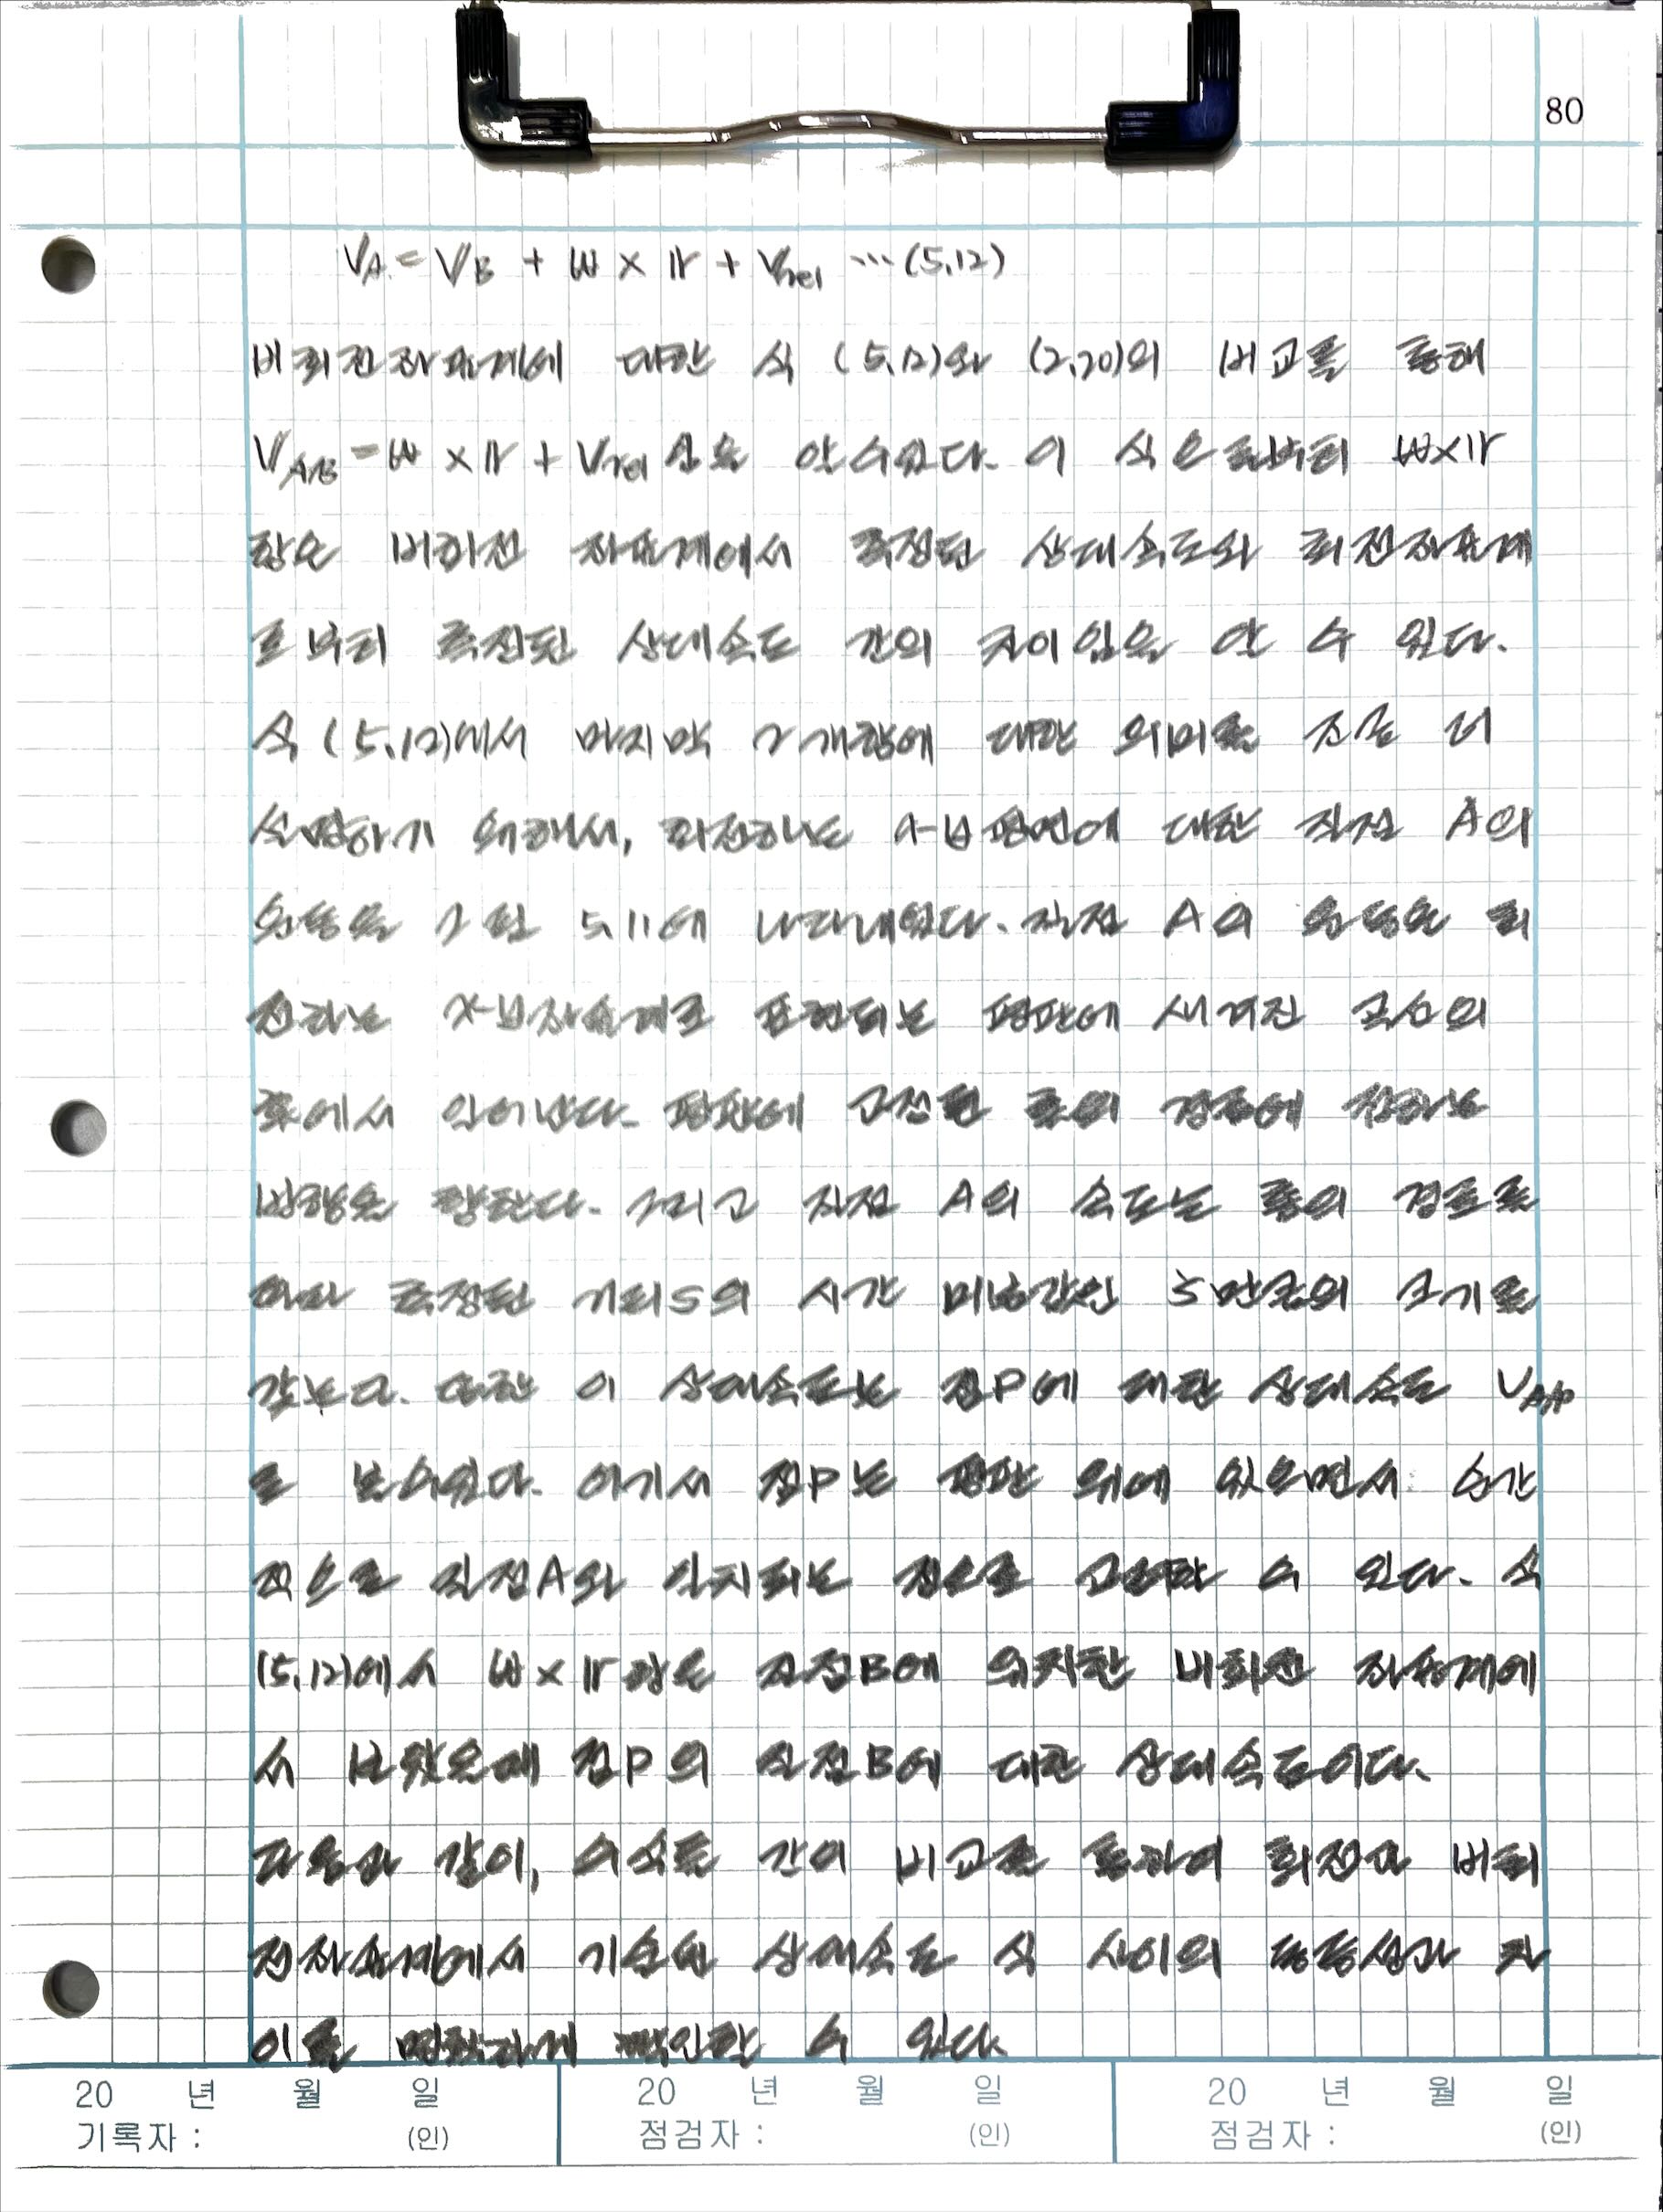 80
V_A = V_B + ω × r + V_rel ··· (5.12)
비회전좌표계에 대한 식 (5.12)와 (2.20)의 비교를 통해
V_A/B = ω × r + V_rel 임을 알 수 있다. 이 식으로부터 ω×r
항은 비회전 좌표계에서 측정된 상대속도와 회전좌표계
로부터 측정된 상대속도 간의 차이임을 알 수 있다.
식 (5.12)에서 마지막 2개항에 대한 의미를 조금 더
설명하기 위해서, 회전하는 x-y평면에 대한 질점 A의
운동을 그림 5.11에 나타내었다. 질점 A의 운동은 회
전하는 x-y좌표계로 표현되는 평판에 새겨진 곡선의
홈에서 일어난다. 평판에 고정된 홈의 경로에 접하는
방향을 향한다. 그리고 질점 A의 속도는 홈의 경로를
따라 측정된 거리 s의 시간 미분값인 ṡ만큼의 크기를
갖는다. 또한 이 상대속도는 점P에 대한 상대속도 V_A/P
로 볼 수 있다. 여기서 점P는 평판 위에 있으면서 순간
적으로 질점A와 일치되는 점으로 고려할 수 있다. 식
(5.12)에서 ω × r 항은 질점B에 위치한 비회전 좌표계에
서 보았을때 점P의 질점B에 대한 상대속도이다.
다음과 같이, 수식들 간의 비교를 통하여 회전과 비회
전좌표계에서 기술된 상대속도 식 사이의 동등성과 차
이를 명확하게 확인할 수 있다.
20 년 월 일 20 년 월 일 20 년 월 일
기록자 : (인) 점검자 : (인) 점검자 : (인)